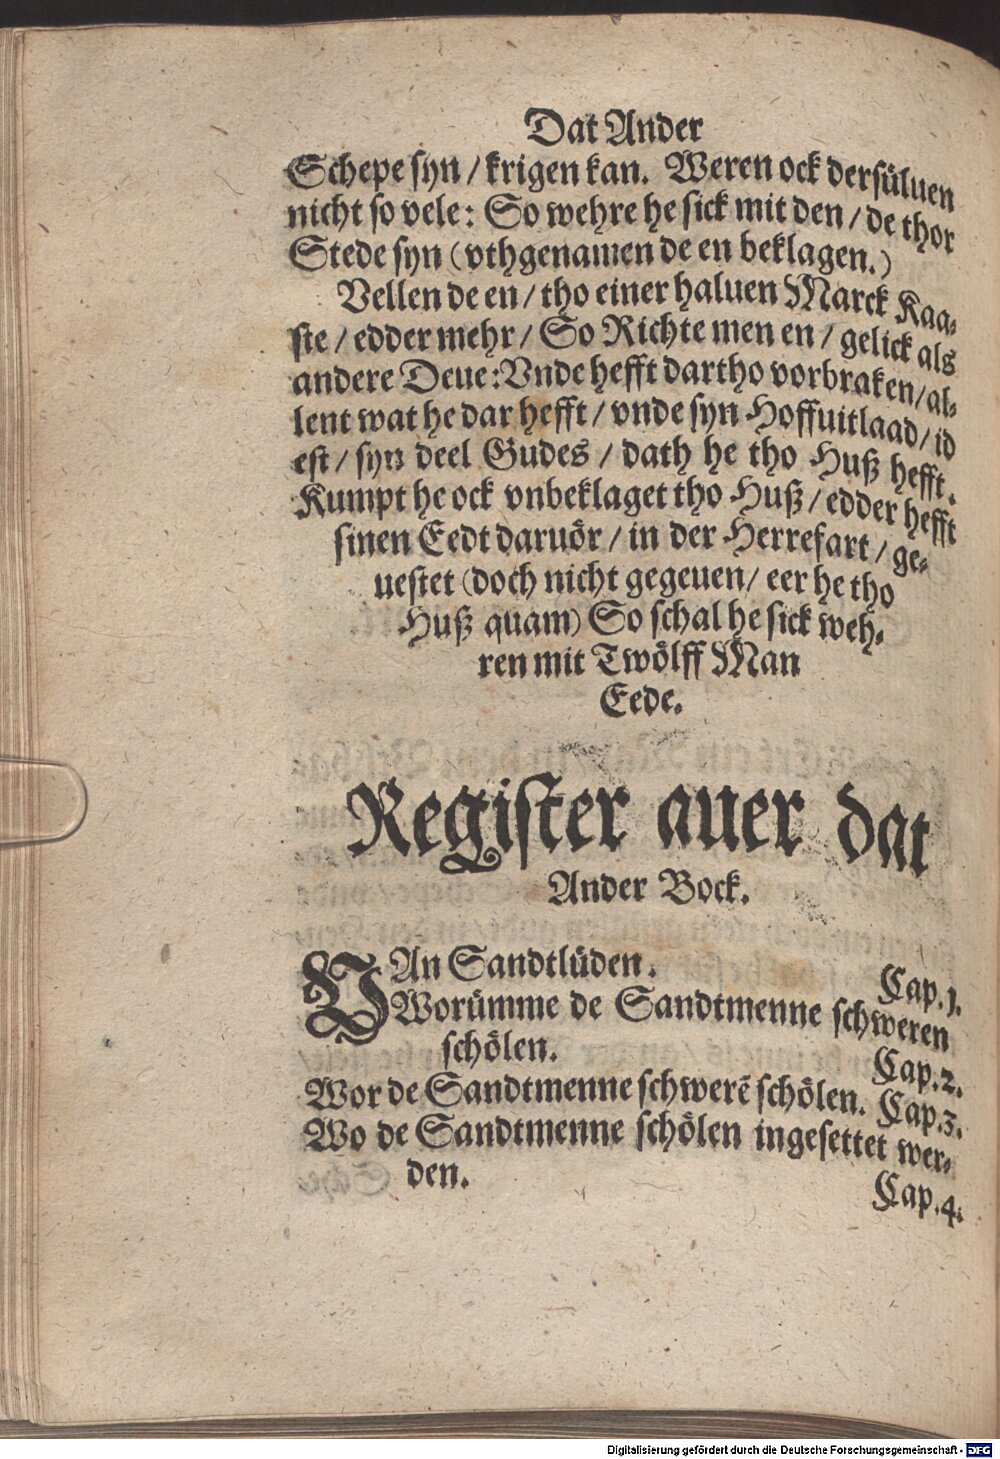 Dat Ander
Schepe syn / krigen kan. Weren ock dersüluen
nicht so vele: So wehre he sick mit den / de thor
Stede syn (vthgenamen de en beklagen.)
Vellen de en / tho einer haluen Marck Kaa⸗
ste / edder mehr / So Richte men en / gelick als
andere Deue: Vnde hefft dartho vorbraken / al⸗
lent wat he dar hefft / vnde syn Hoffuitlaad / id
est / syn deel Gudes / dath he tho Huß hefft.
Kumpt he ock vnbeklaget tho Huß / edder hefft
sinen Eedt daruör / in der Herrefart / ge⸗
uestet (doch nicht gegeuen / eer he tho
Huß quam) So schal he sick weh⸗
ren mit Twölff Man
Eede.
Register auer dat
Ander Bock.
VAn Sandtlüden. Cap. 1.
Worümme de Sandtmenne schweren
schölen. Cap. 2.
Wor de Sandtmenne schwerē schölen. Cap. 3.
Wo de Sandtmenne schölen ingesettet wer⸗
den. Cap. 4.
Digitalisierung gefördert durch die Deutsche Forschungsgemeinschaft - DFG